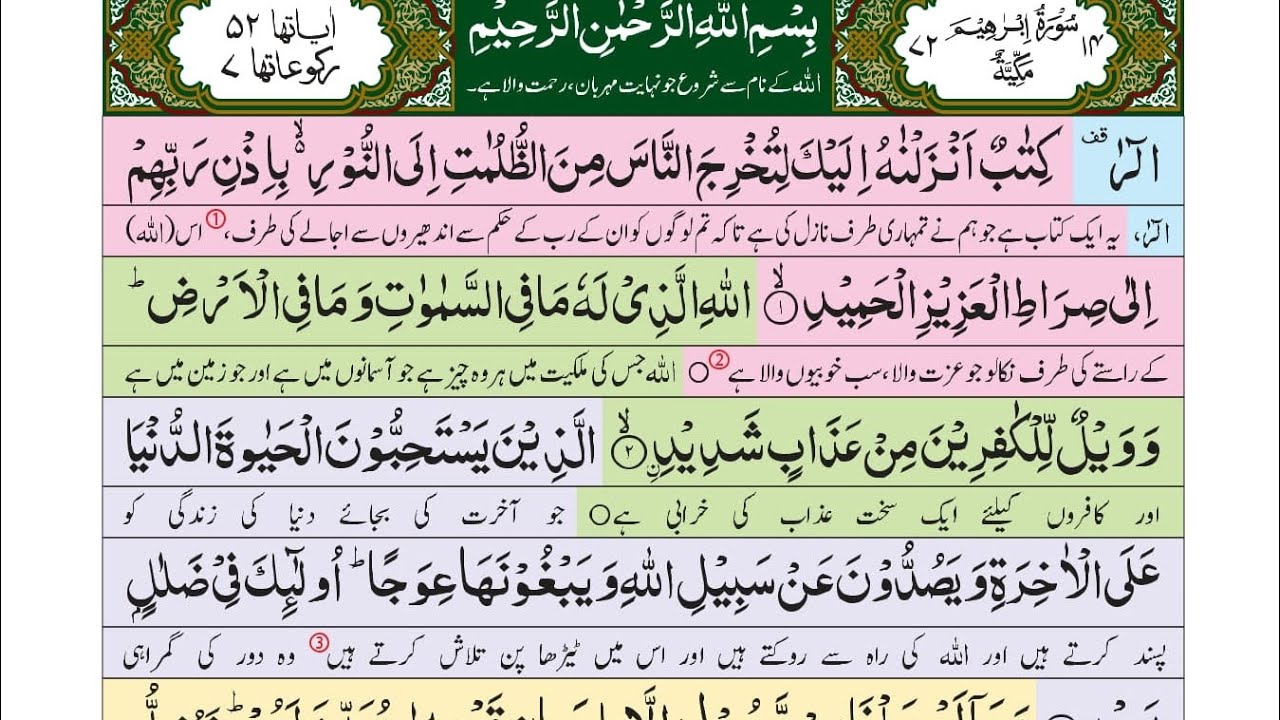 سُوْرَةُ اِبْرٰهِيْمَ
۱۴ مَكِّيَّةٌ ۷۲
بِسْمِ اللّٰهِ الرَّحْمٰنِ الرَّحِيْمِ
اللہ کے نام سے شروع جو نہایت مہربان، رحمت والا ہے۔
اٰیاتها ۵۲
رکوعاتها ۷
الٓرٰ ۫ كِتٰبٌ اَنْزَلْنٰهُ اِلَيْكَ لِتُخْرِجَ النَّاسَ مِنَ الظُّلُمٰتِ اِلَى النُّوْرِ ۙ۬ بِاِذْنِ رَبِّهِمْ
الٓرٰ، یہ ایک کتاب ہے جو ہم نے تمہاری طرف نازل کی ہے تاکہ تم لوگوں کو ان کے رب کے حکم سے اندھیروں سے اجالے کی طرف، ① اس (اللہ)
اِلٰى صِرَاطِ الْعَزِيْزِ الْحَمِيْدِ ۙ﴿۱﴾ اللّٰهِ الَّذِيْ لَهٗ مَا فِي السَّمٰوٰتِ وَ مَا فِي الْاَرْضِ ؕ
کے راستے کی طرف نکالو جو عزت والا، سب خوبیوں والا ہے ② ○ اللہ جس کی ملکیت میں ہر وہ چیز ہے جو آسمانوں میں ہے اور جو زمین میں ہے
وَ وَيْلٌ لِّلْكٰفِرِيْنَ مِنْ عَذَابٍ شَدِيْدِ ۙ﴿۲﴾ ِ۟الَّذِيْنَ يَسْتَحِبُّوْنَ الْحَيٰوةَ الدُّنْيَا
اور کافروں کیلئے ایک سخت عذاب کی خرابی ہے ○ جو آخرت کی بجائے دنیا کی زندگی کو
عَلَى الْاٰخِرَةِ وَ يَصُدُّوْنَ عَنْ سَبِيْلِ اللّٰهِ وَ يَبْغُوْنَهَا عِوَجًا ؕ اُولٰٓىِٕكَ فِيْ ضَلٰلٍۭ
پسند کرتے ہیں اور اللہ کی راہ سے روکتے ہیں اور اس میں ٹیڑھا پن تلاش کرتے ہیں ③ وہ دور کی گمراہی